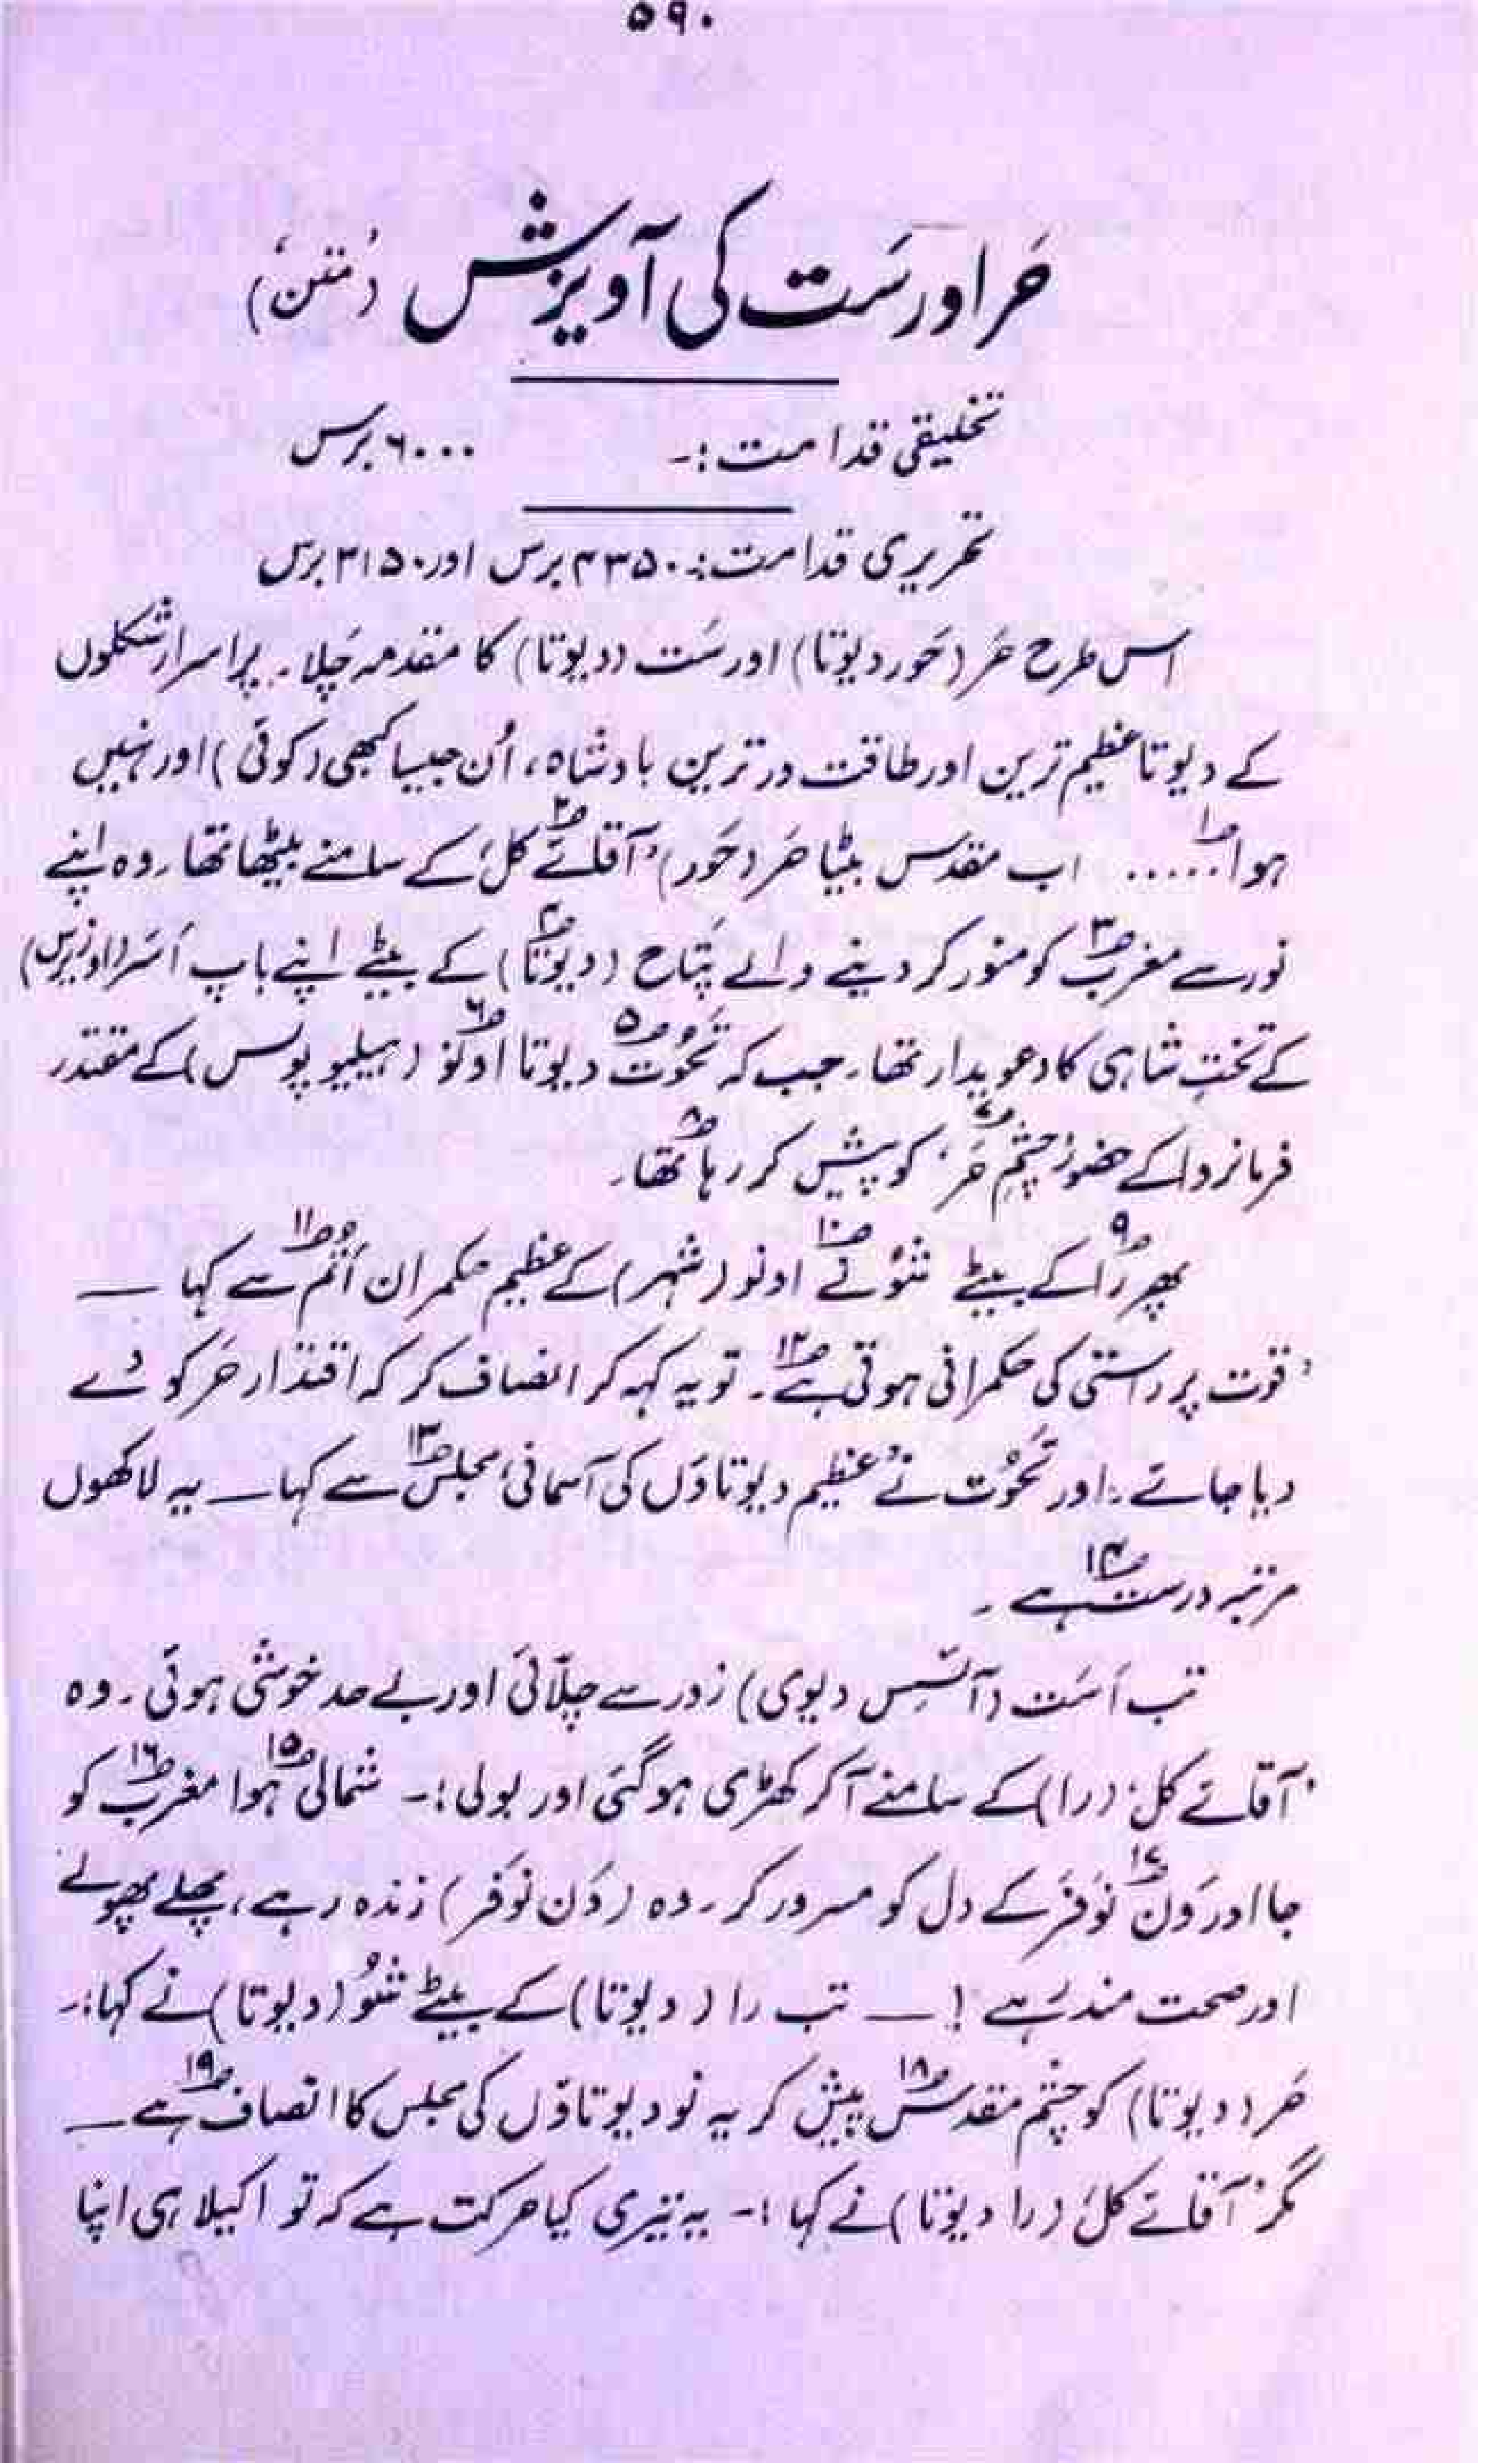 ۵۹۰
حَر اور سَت کی آویزش (’متن‘)
تخلیقی قدامت:۔ ۶۰۰۰ برس
تحریری قدامت:۔ ۴۳۵۰ برس اور ۳۱۵۰ برس
اس طرح حَر (حَور دیوتا) اور سَت (دیوتا) کا مقدمہ چَلا۔ پراسرار شکلوں
کے دیوتا عظیم ترین اور طاقت ور ترین بادشاہ، اُن جیسا کبھی (کوئی) اور نہیں
ہوا؂۱..... اب مقدس بیٹا حَر (حَور) ’آقائے؂۲ کل‘ کے سامنے بیٹھا تھا۔ وہ اپنے
نور سے مغرب؂۳ کو منور کر دینے والے پتَاح (دیوتا)؂۴ کے بیٹے اپنے باپ اَسَر (اوزیرس)
کے تختِ شاہی کا دعویدار تھا۔ جب کہ تَحُوت؂۵ دیوتا اونو؂۶ (ہیلیوپولس) کے مقتدر
فرمانروا کے حضور ’چشمِ حَر‘؂۷ کو پیش کر رہا؂۸ تھا۔
پھر رَا؂۹ کے بیٹے شُو نے؂۱۰ اونو (شہر) کے عظیم حکمران اَتُم؂۱۱ سے کہا —
’قوت پر راستی کی حکمرانی ہوتی ہے؂۱۲۔ تو یہ کہہ کر انصاف کر کہ اقتدار حَر کو دے
دیا جائے۔ اور تَحُوت نے عظیم دیوتاؤں کی آسمانی مجلس؂۱۳ سے کہا — یہ لاکھوں
مرتبہ درست؂۱۴ ہے۔
تب اَسَت (آئسِس دیوی) زور سے چلّائی اور بے حد خوش ہوئی۔ وہ
’آقائے کل‘ (را) کے سامنے آ کر کھڑی ہو گئی اور بولی:۔ شمالی؂۱۵ ہوا مغرب؂۱۶ کو
جا اور وَن؂۱۷ نَوفَر کے دل کو مسرور کر۔ وہ (وَن نَوفَر) زندہ رہے، پھلے پھولے
اور صحت مند رہے! — تب را (دیوتا) کے بیٹے شُو (دیوتا) نے کہا:۔
حَر (دیوتا) کو چشمِ مقدس؂۱۸ پیش کر یہ نو دیوتاؤں کی مجلس کا انصاف؂۱۹ ہے —
مگر ’آقائے کل‘ (را دیوتا) نے کہا:۔ یہ تیری کیا حرکت ہے کہ تو اکیلا ہی اپنا